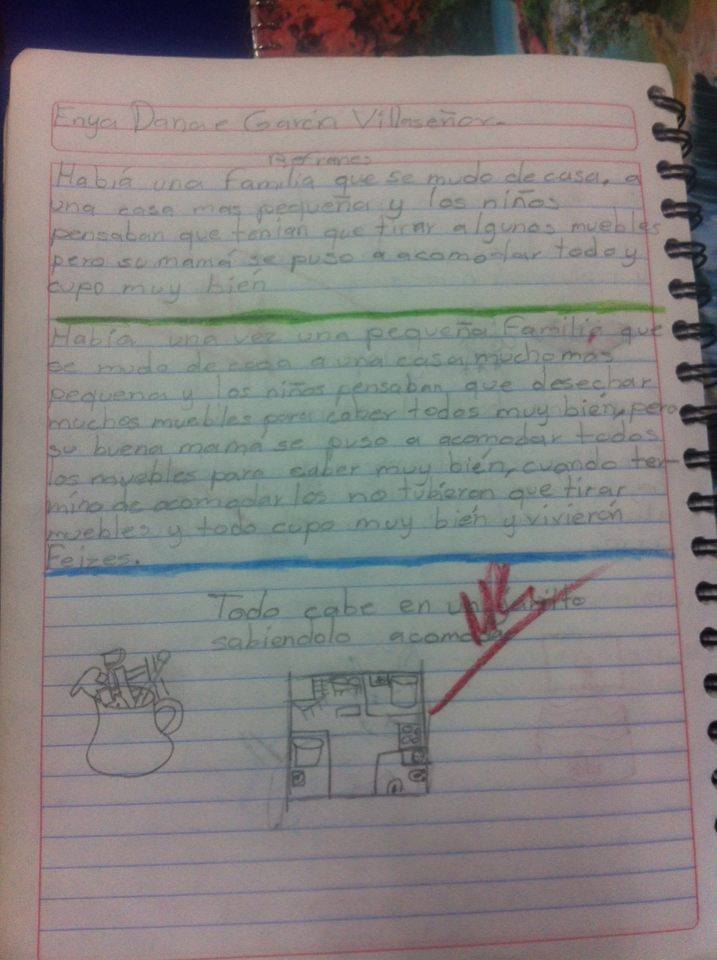 Enya Danae García Villaseñor.
Refranes
Habiá una familia que se mudo de casa, a
una casa mas pequeña y los niños
pensaban que tenían que tirar algunos muebles
pero su mamá se puso a acomodar todo y
cupo muy bien
Habiá una vez una pequeña Familia que
se mudo de casa a una casa mucho mas
pequena y los niños pensaban que desechar
muchos muebles para caber todos muy bién, pero
su buena mamá se puso a acomodar todos
los muebles para caber muy bién, cuando ter-
mino de acomodarlos no tubieron que tirar
muebles y todo cupo muy bién y vivierón
Feizes.
Todo cabe en un jarrito
sabiendolo acomodar